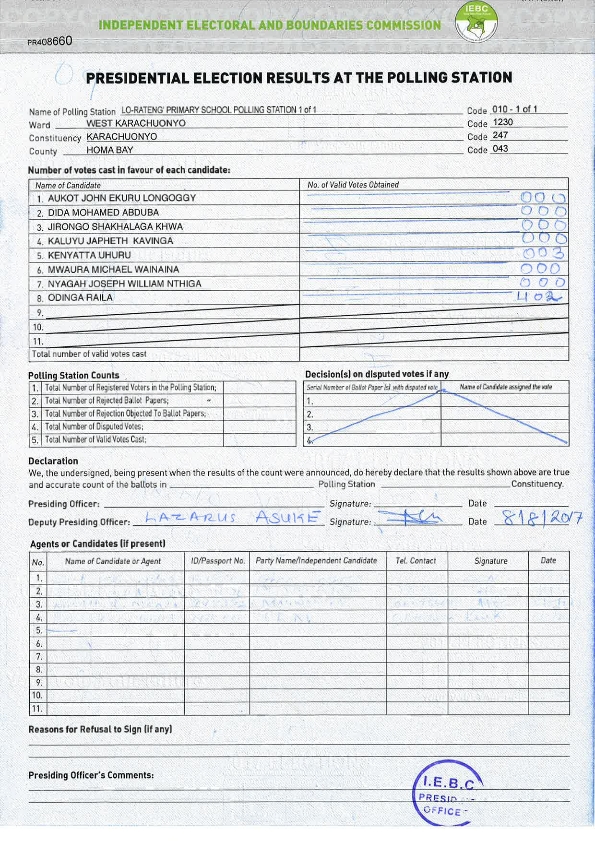 INDEPENDENT ELECTORAL AND BOUNDARIES COMMISSION
IEBC
PR408660
PRESIDENTIAL ELECTION RESULTS AT THE POLLING STATION
Name of Polling Station LO-RATENG' PRIMARY SCHOOL POLLING STATION 1 of 1 Code 010 - 1 of 1
Ward WEST KARACHUONYO Code 1230
Constituency KARACHUONYO Code 247
County HOMA BAY Code 043
Number of votes cast in favour of each candidate:
Name of Candidate No. of Valid Votes Obtained
1. AUKOT JOHN EKURU LONGOGGY 000
2. DIDA MOHAMED ABDUBA 000
3. JIRONGO SHAKHALAGA KHWA 000
4. KALUYU JAPHETH KAVINGA 000
5. KENYATTA UHURU 003
6. MWAURA MICHAEL WAINAINA 000
7. NYAGAH JOSEPH WILLIAM NTHIGA 000
8. ODINGA RAILA 402
9.
10.
11.
Total number of valid votes cast
Polling Station Counts Decision(s) on disputed votes if any
1. Total Number of Registered Voters in the Polling Station; Serial Number of Ballot Paper(s) with disputed vote Name of Candidate assigned the vote
2. Total Number of Rejected Ballot Papers; 1.
3. Total Number of Rejection Objected To Ballot Papers; 2.
4. Total Number of Disputed Votes; 3.
5. Total Number of Valid Votes Cast; 4.
Declaration
We, the undersigned, being present when the results of the count were announced, do hereby declare that the results shown above are true
and accurate count of the ballots in Polling Station Constituency.
Presiding Officer: Signature: Date
Deputy Presiding Officer: LAZARUS ASUKE Signature: Date 8/8/2017
Agents or Candidates (if present)
No. Name of Candidate or Agent ID/Passport No. Party Name/Independent Candidate Tel. Contact Signature Date
1.
2.
3.
4.
5.
6.
7.
8.
9.
10.
11.
Reasons for Refusal to Sign (if any)
Presiding Officer's Comments:
I.E.B.C
PRESID
OFFICE